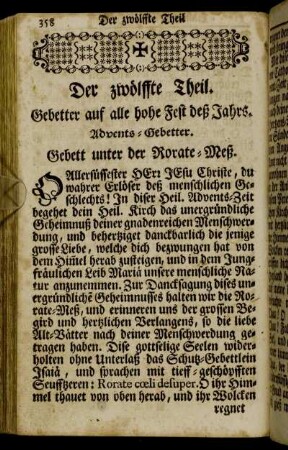 358 Der zwölffte Theil
Der zwölffte Theil.
Gebetter auf alle hohe Fest deß Jahrs.
Advents-Gebetter.
Gebett unter der Rorate-Meß.
O Allersüssester HErr JEsu Christe, du
wahrer Erlöser deß menschlichen Ge-
schlechts! In diser Heil. Advents-Zeit
begehet dein Heil. Kirch das unergründliche
Geheimnuß deiner gnadenreichen Menschwer-
dung, und beherziget danckbarlich die jenige
grosse Liebe, welche dich bezwungen hat von
dem Himel herab zusteigen, und in dem Jung-
fräulichen Leib Mariä unsere menschliche Na-
tur anzunemmen. Zur Dancksagung dises un-
ergründlichē Geheimnusses halten wir die Ro-
rate-Meß, und erinneren uns der grossen Be-
gird und hertzlichen Verlangens, so die liebe
Alt-Vätter nach deiner Menschwerdung ge-
tragen haben. Dise gottselige Seelen wider-
holten ohne Unterlaß das Schutz-Gebettlein
Isaiä, und sprachen mit tieff-geschöpfften
Seufftzeren: Rorate cœli desuper. O ihr Him-
mel thauet von oben herab, und ihr Wolcken
regnet